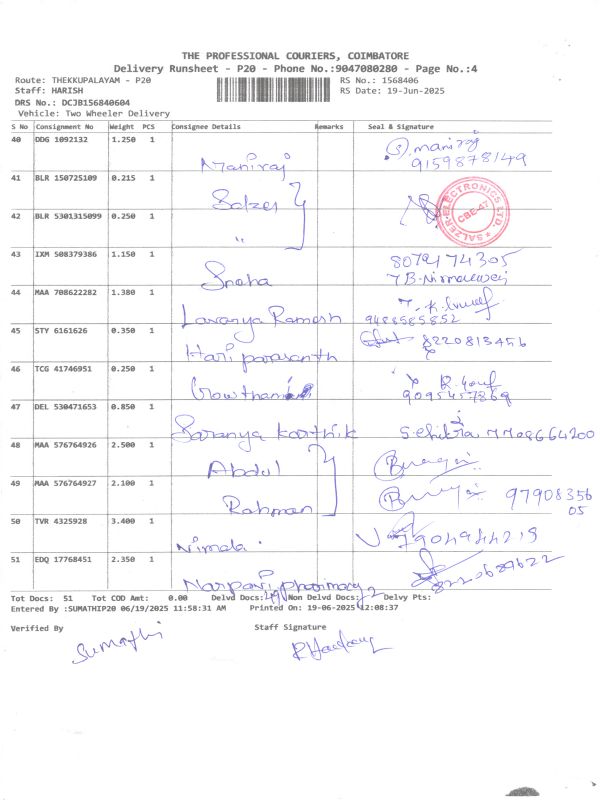 THE PROFESSIONAL COURIERS, COIMBATORE
Delivery Runsheet - P20 - Phone No.:9047080280 - Page No.:4
Route: THEKKUPALAYAM - P20 RS No.: 1568406
Staff: HARISH RS Date: 19-Jun-2025
DRS No.: DCJB156840604
Vehicle: Two Wheeler Delivery
S No Consignment No Weight PCS Consignee Details Remarks Seal & Signature
40 DDG 1092132 1.250 1 Maniraj maniraj 9159878149
41 BLR 150725109 0.215 1 Salzer SALZER ELECTRONICS LTD. CBE-47
42 BLR 5301315099 0.250 1 "
43 IXM 508379386 1.150 1 Sneha 8079174305
44 MAA 708622282 1.380 1 Lavanya Ramesh 9488585852
45 STY 6161626 0.350 1 Hari prasanth 8220813456
46 TCG 41746951 0.250 1 Gowtham 9095457869
47 DEL 530471653 0.850 1 Saranya Karthik S. Chitra 7708664200
48 MAA 576764926 2.500 1 Abdul
49 MAA 576764927 2.100 1 Rahman 97908356
05
50 TVR 4325928 3.400 1 Nimala 7904944219
51 EDQ 17768451 2.350 1 Narpavi pharmacy
Tot Docs: 51 Tot COD Amt: 0.00 Delvd Docs: 49 Non Delvd Docs: 2 Delvy Pts:
Entered By :SUMATHIP20 06/19/2025 11:58:31 AM Printed On: 19-06-2025 12:08:37
Verified By Staff Signature
Sumathi